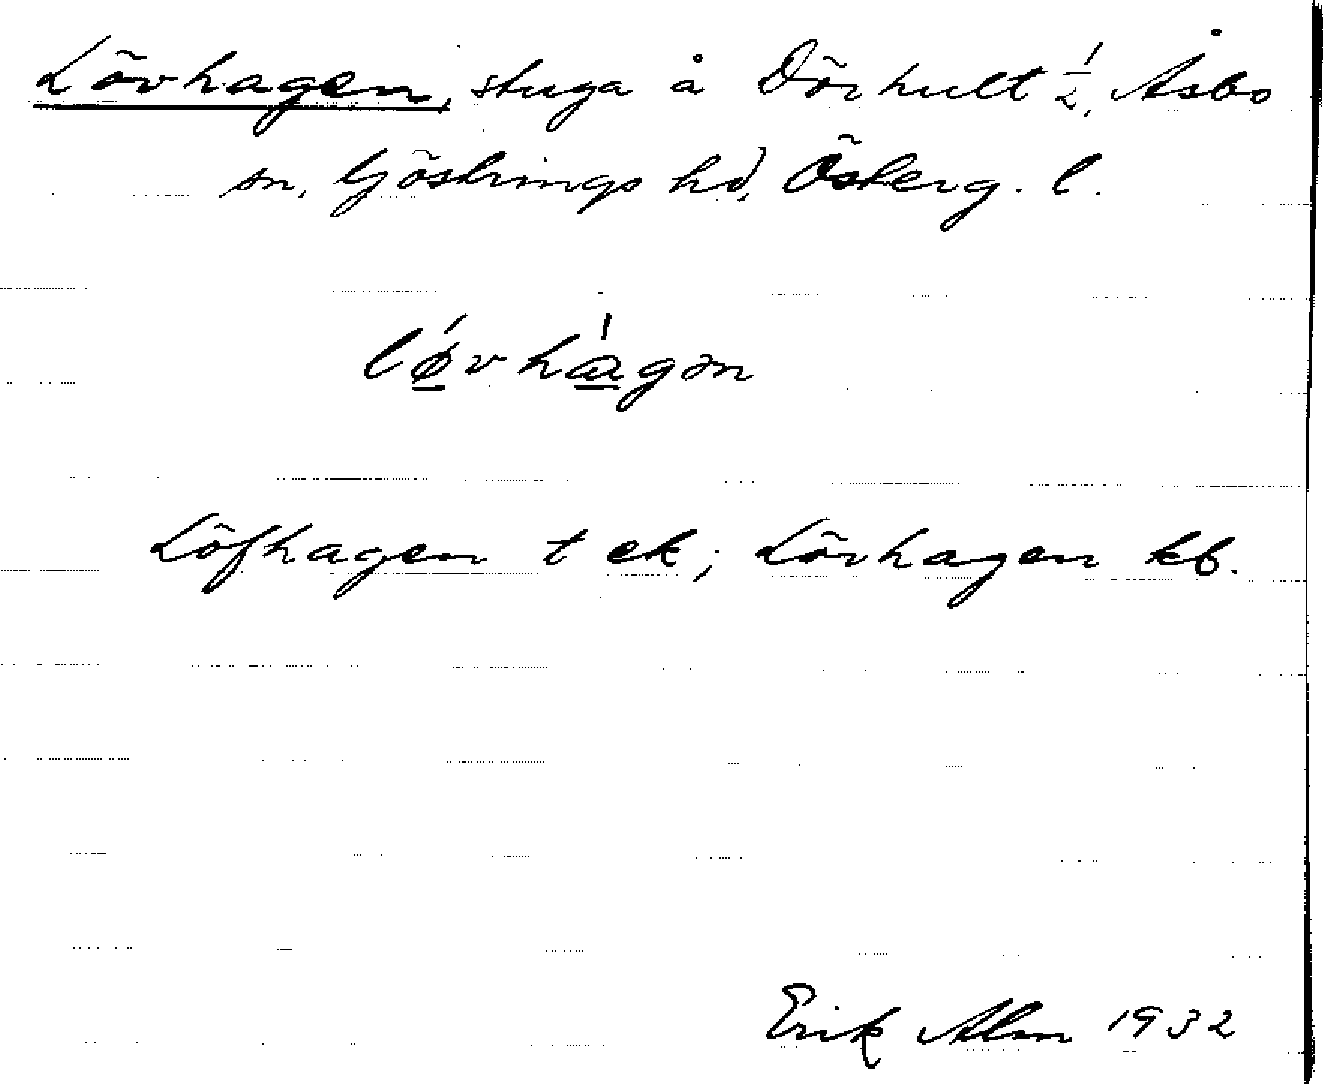 Lövhagen, stuga å Dörhult 1/2, Åsbo
sn, Göstrings hd, Österg. l.
lǿvhágən
Löfhagen t ek; Lövhagen kb.
Erik Alm 1932